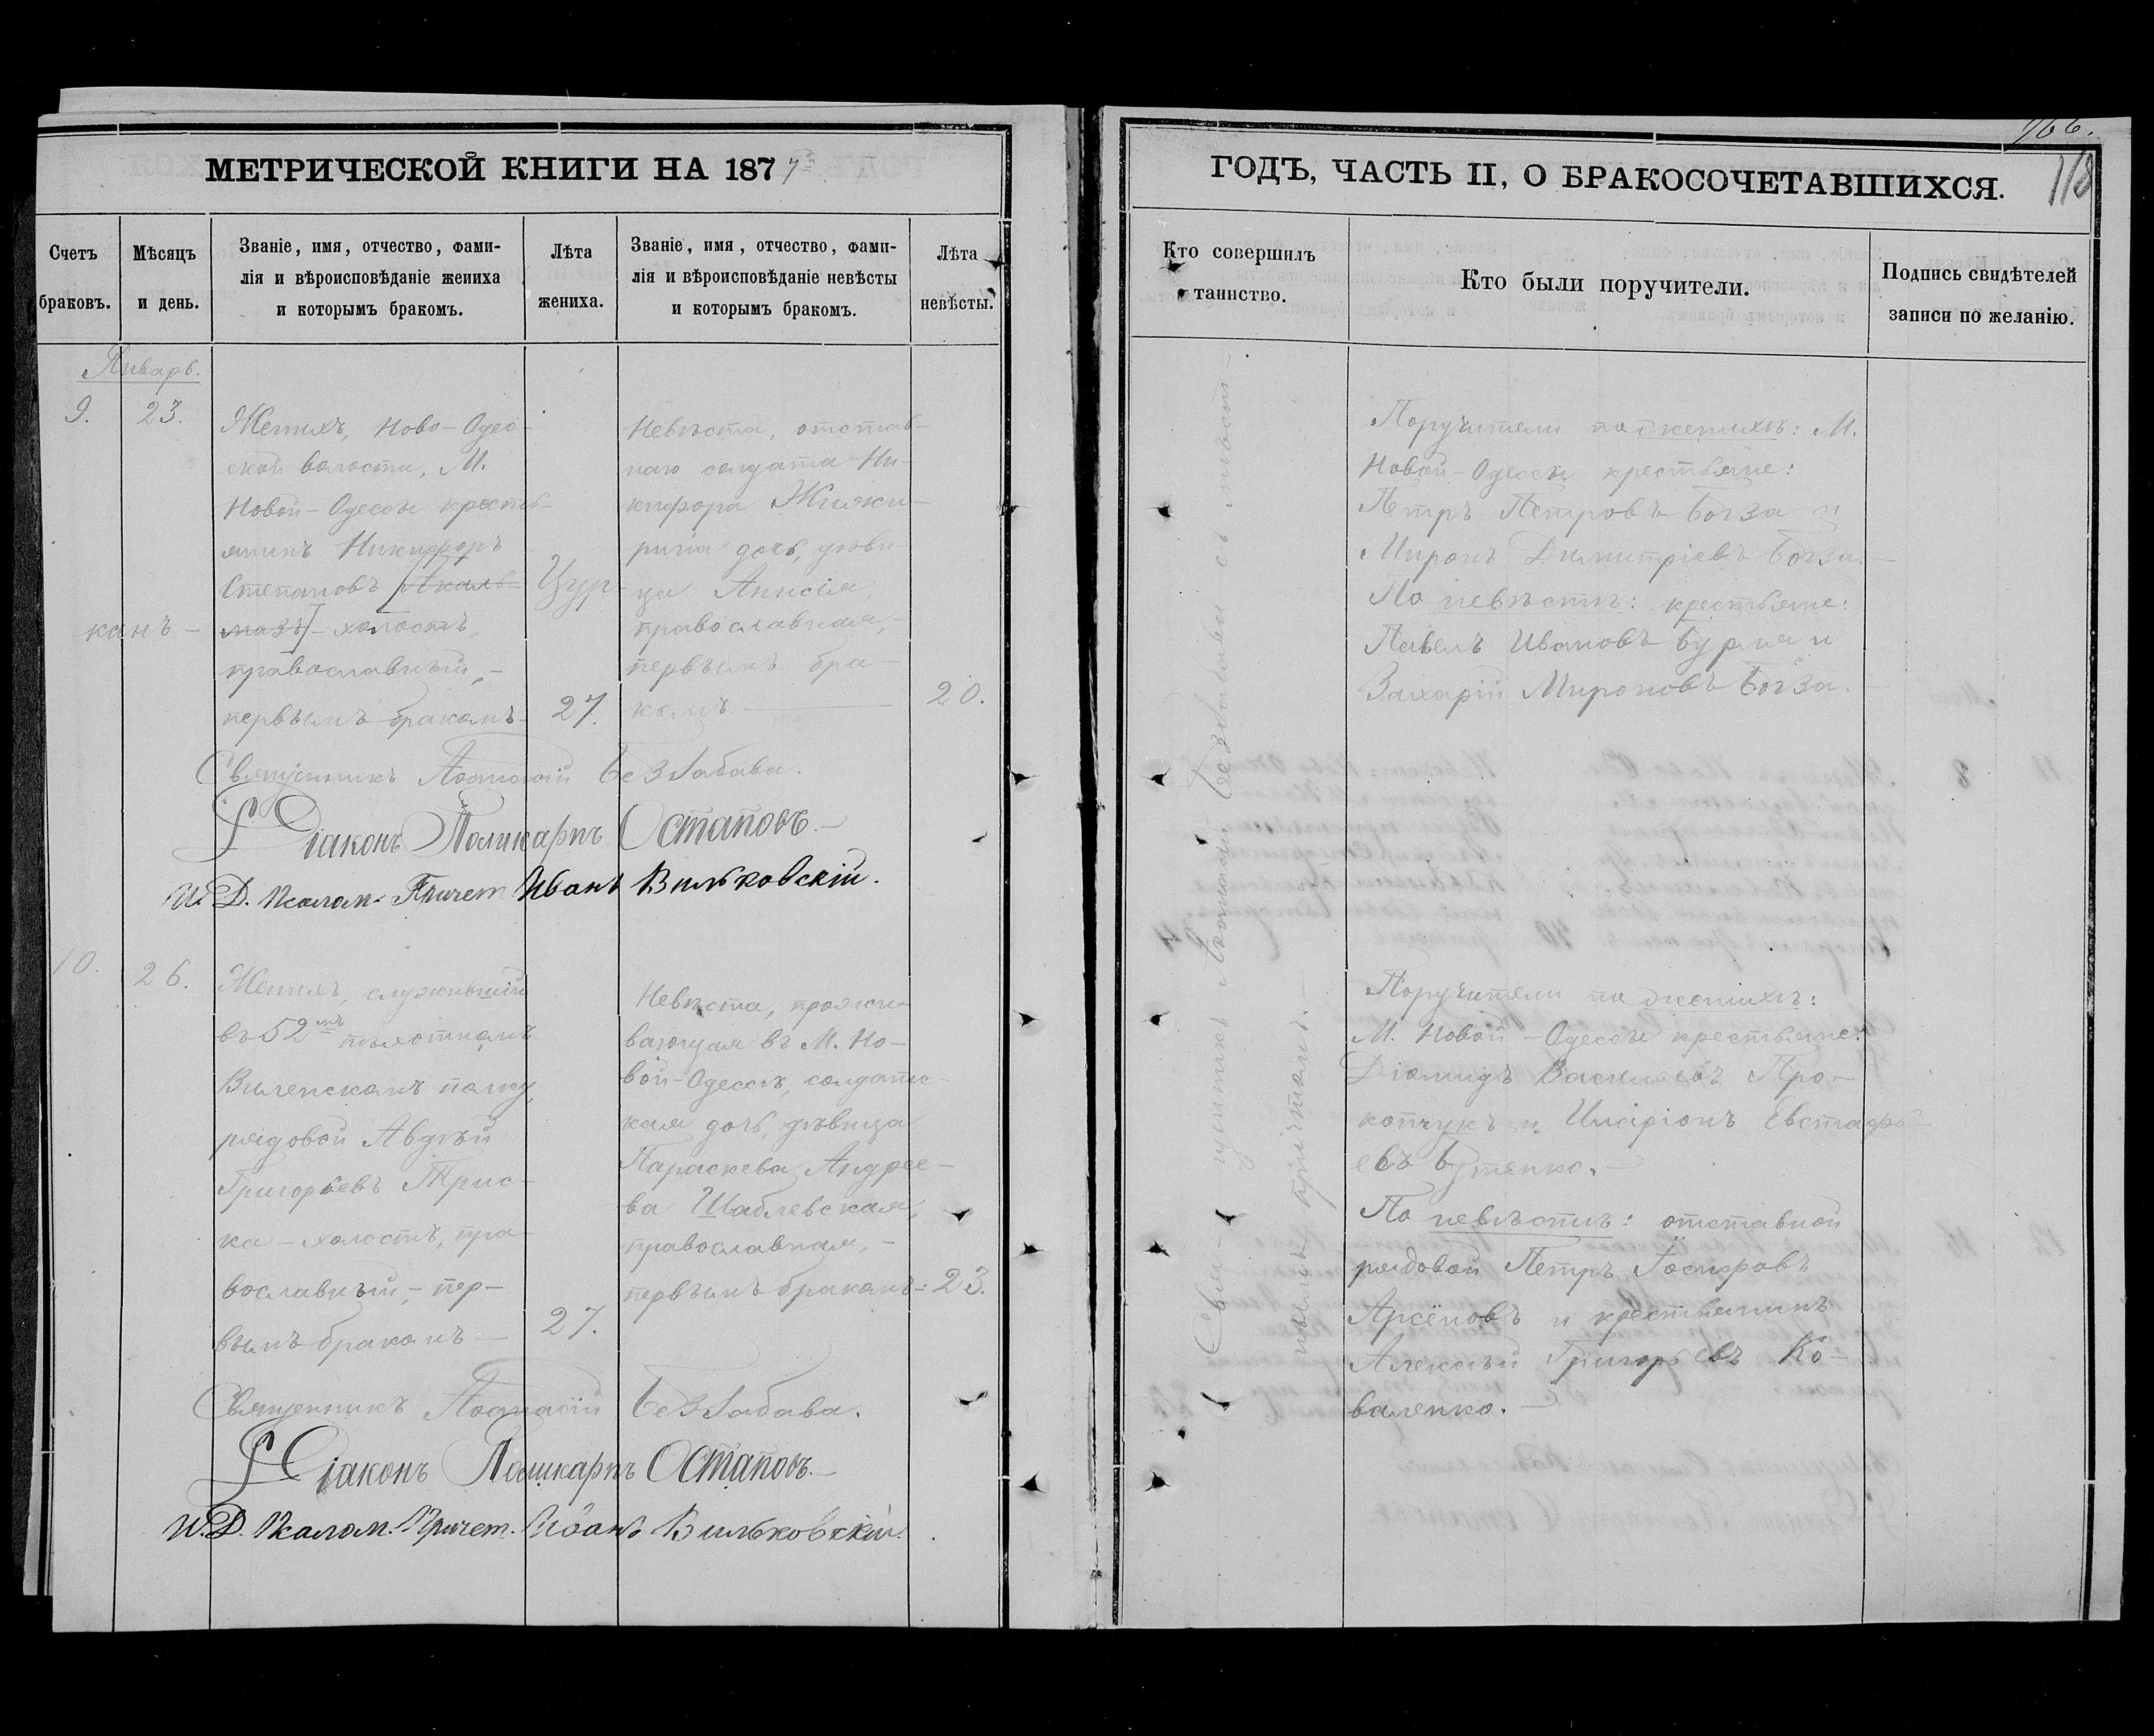 МЕТРИЧЕСКОЙ КНИГИ НА 1877
Счетъ браковъ.
Мѣсяцъ и день.
Званіе, имя, отчество, фами-
лія и вѣроисповѣданіе жениха
и которымъ бракомъ.
Лѣта
жениха.
Званіе, имя, отчество, фами-
лія и вѣроисповѣданіе невѣсты
и которымъ бракомъ.
Лѣта
невѣсты.
Январь.
9.
23.
Женихъ, Ново-Одес-
ской волости, М.
Новой-Одессы кресть-
янинъ Никифоръ
Степановъ
Цур-
канъ –
холостъ,
православный, –
первымъ бракомъ –
27.
Невѣста, отстав-
наго солдата Ни-
кифора
дочь, дѣви-
ца Анисія,
православная, –
первымъ бра-
комъ
20.
Священникъ Аѳанасій Беззабава.
Діаконъ Поликарпъ Остаповъ. –
И. Д. Псалом. Причет. Иванъ Вильковскій.
10.
26.
Женихъ, служившій
въ 52мъ пѣхотномъ
Виленскомъ полку,
рядовой Авдѣй
Григорьевъ Трис-
ка – холостъ, пра-
вославный, – пер-
вымъ бракомъ –
27.
Невѣста, прожи-
вающая въ М. Но-
вой-Одессѣ, солдатс-
кая дочь, дѣвица
Параскева Андрее-
ва Шаблевская,
православная, –
первымъ бракомъ =
23.
Священникъ Аѳанасій Беззабава.
Діаконъ Поликарпъ Остаповъ. –
И. Д. Псалом. Причет. Іоанъ Вильковскій.
166.
118
ГОДЪ, ЧАСТЬ II, О БРАКОСОЧЕТАВШИХСЯ.
Кто совершилъ
таинство.
Кто были поручители.
Подпись свидѣтелей
записи по желанію.
Свя-щенникъ Аѳанасій Беззабава съ мѣст-
нымъ причтомъ. –
Поручители по женихѣ: М.
Новой-Одессы крестьяне:
Петръ Петровъ Богза и
Миронъ Димитріевъ Богза. –
По невѣстѣ: крестьяне:
Павелъ Ивановъ и
Захарій Мироновъ Богза.
Поручители по женихѣ:
М. Новой-Одессы крестьяне:
Діомидъ Васильевъ Про-
копчукъ и Иларіонъ Евстафь-
евъ Бутенко. –
По невѣстѣ: отставной
рядовой Петръ Іосифовъ
Арсёновъ и крестьянинъ
Алексѣй Григорьевъ Ко-
валенко. –